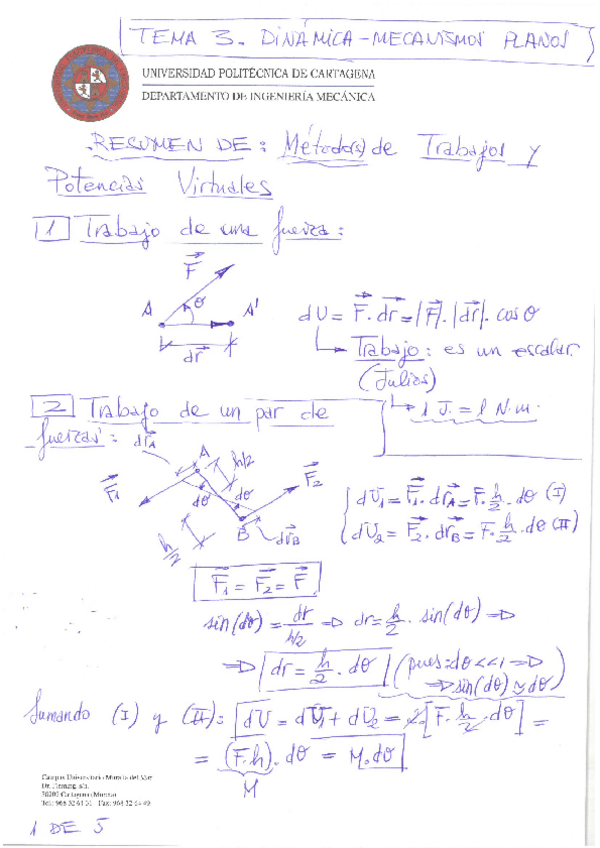 TEMA 3. DINÁMICA-MECANISMOS PLANOS
UNIVERSIDAD POLITÉCNICA DE CARTAGENA
DEPARTAMENTO DE INGENIERÍA MECÁNICA
RESUMEN DE: Método(s) de Trabajos y
Potencias Virtuales
1 Trabajo de una fuerza:
F⃗
A θ A'
dr⃗
dU = F⃗ · dr⃗ = |F⃗| · |dr⃗| · cos θ
Trabajo: es un escalar
(Julios)
1 J. = 1 N·m.
2 Trabajo de un par de
fuerzas:
dr⃗A A h/2
F⃗1 dθ dθ F⃗2
h/2 B dr⃗B
dU1 = F⃗1 · dr⃗A = F · h/2 · dθ (I)
dU2 = F⃗2 · dr⃗B = F · h/2 · dθ (II)
F⃗1 = F⃗2 = F⃗
sin(dθ) = dr/(h/2) => dr = h/2 · sin(dθ) =>
=> dr = h/2 · dθ (pues: dθ << 1 =>
=> sin(dθ) ≅ dθ)
Sumando (I) y (II): dU = dU1 + dU2 = 2 [F · h/2 · dθ] =
= (F·h) · dθ = M · dθ
M
Campus Universitario Muralla del Mar
Dr. Fleming, s/n.
30202 Cartagena (Murcia)
1 DE 5